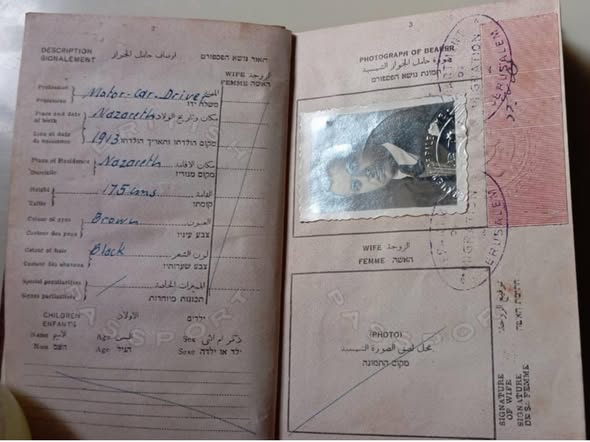 2
DESCRIPTION
SIGNALEMENT
اوصاف حامل الجواز
תאור נושא הפספורט
WIFE الزوجة
FEMME האשה
Profession
Profession
Motor-Car-Driver
משלח ידו
Place and date
of birth
Nazareth
مكان وتاريخ الولادة
Lieu et date
de naissance
1913
מקום הולדתו ותאריך הולדתו
Place of Residence
Domicile
Nazareth
مكان الاقامة
מקום מגוריו
Height
Taille
175 cms
القامة
קומתו
Colour of eyes
Couleur des yeux
Brown
العيون
צבע עיניו
Colour of hair
Couleur des cheveux
Black
لون الشعر
צבע שערותיו
Special peculiarities
Signes particuliers
المميزات الخاصة
תכונות מיוחדות
CHILDREN
ENFANTS
الاولاد
ילדים
Name الاسم
Age السن
Sex ذكر ام انثى
Nom השם
Age הגיל
Sexe ילד או ילדה
BRITISH
PASSPORT
3
PHOTOGRAPH OF BEARER
صورة حامل الجواز الشمسية
תמונת נושא הפספורט
DEPARTMENT OF IMMIGRATION
JERUSALEM
WIFE الزوجة
FEMME האשה
(PHOTO)
محل لصق الصورة الشمسية
מקום התמונה
PASSPORT
توقيع الزوجة
חתימת האשה
SIGNATURE
OF WIFE
SIGNATURE
DE SA FEMME
IMMIGRATION
JERUSALEM